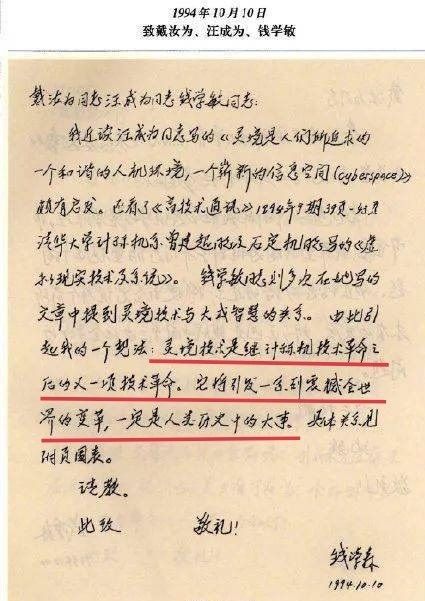 1994年10月10日
致戴汝为、汪成为、钱学敏
戴汝为同志汪成为同志钱学敏同志:
我近读汪成为同志写的《灵境是人们所追求的
一个和谐的人机环境,一个崭新的信息空间(cyberspace)》
颇有启发。已看了《高技术通讯》1994年9期39页-42页
清华大学计算机系曾建超教授及石定机教授写的《虚
拟现实技术及系统》。钱学敏教授则多次在她写的
文章中提到灵境技术与大成智慧的关系。由此引
起我的一个想法:灵境技术是继计算机技术革命之
后的又一项技术革命。它将引发一系列震撼全世
界的变革,一定是人类历史中的大事。具体关系见
附页图表。
请教。
此致 敬礼!
钱学森
1994.10.10